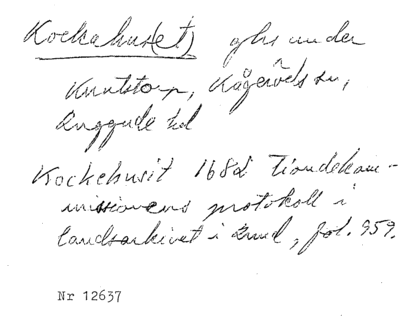 Kockahus(et) ghs under
Knutstorp, Kågeröds sn,
Luggude hd
Kockehusit 1682 Tiondekom-
missionens protokoll i
landsarkivet i Lund, fol. 959.
Nr 12637